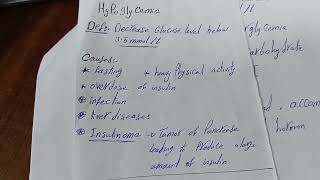 HyPoglycemia
Def:- Decrease Glucose level below
3.5 mmol/L
Causes:-
* fasting * heavy Physical activity
* overdose of insulin
* infection
* liver diseases
* Insulinoma → Tumor of Pancrease
leading to Produce a large
amount of insulin
glycemia
carbohydrate
accom
hormon